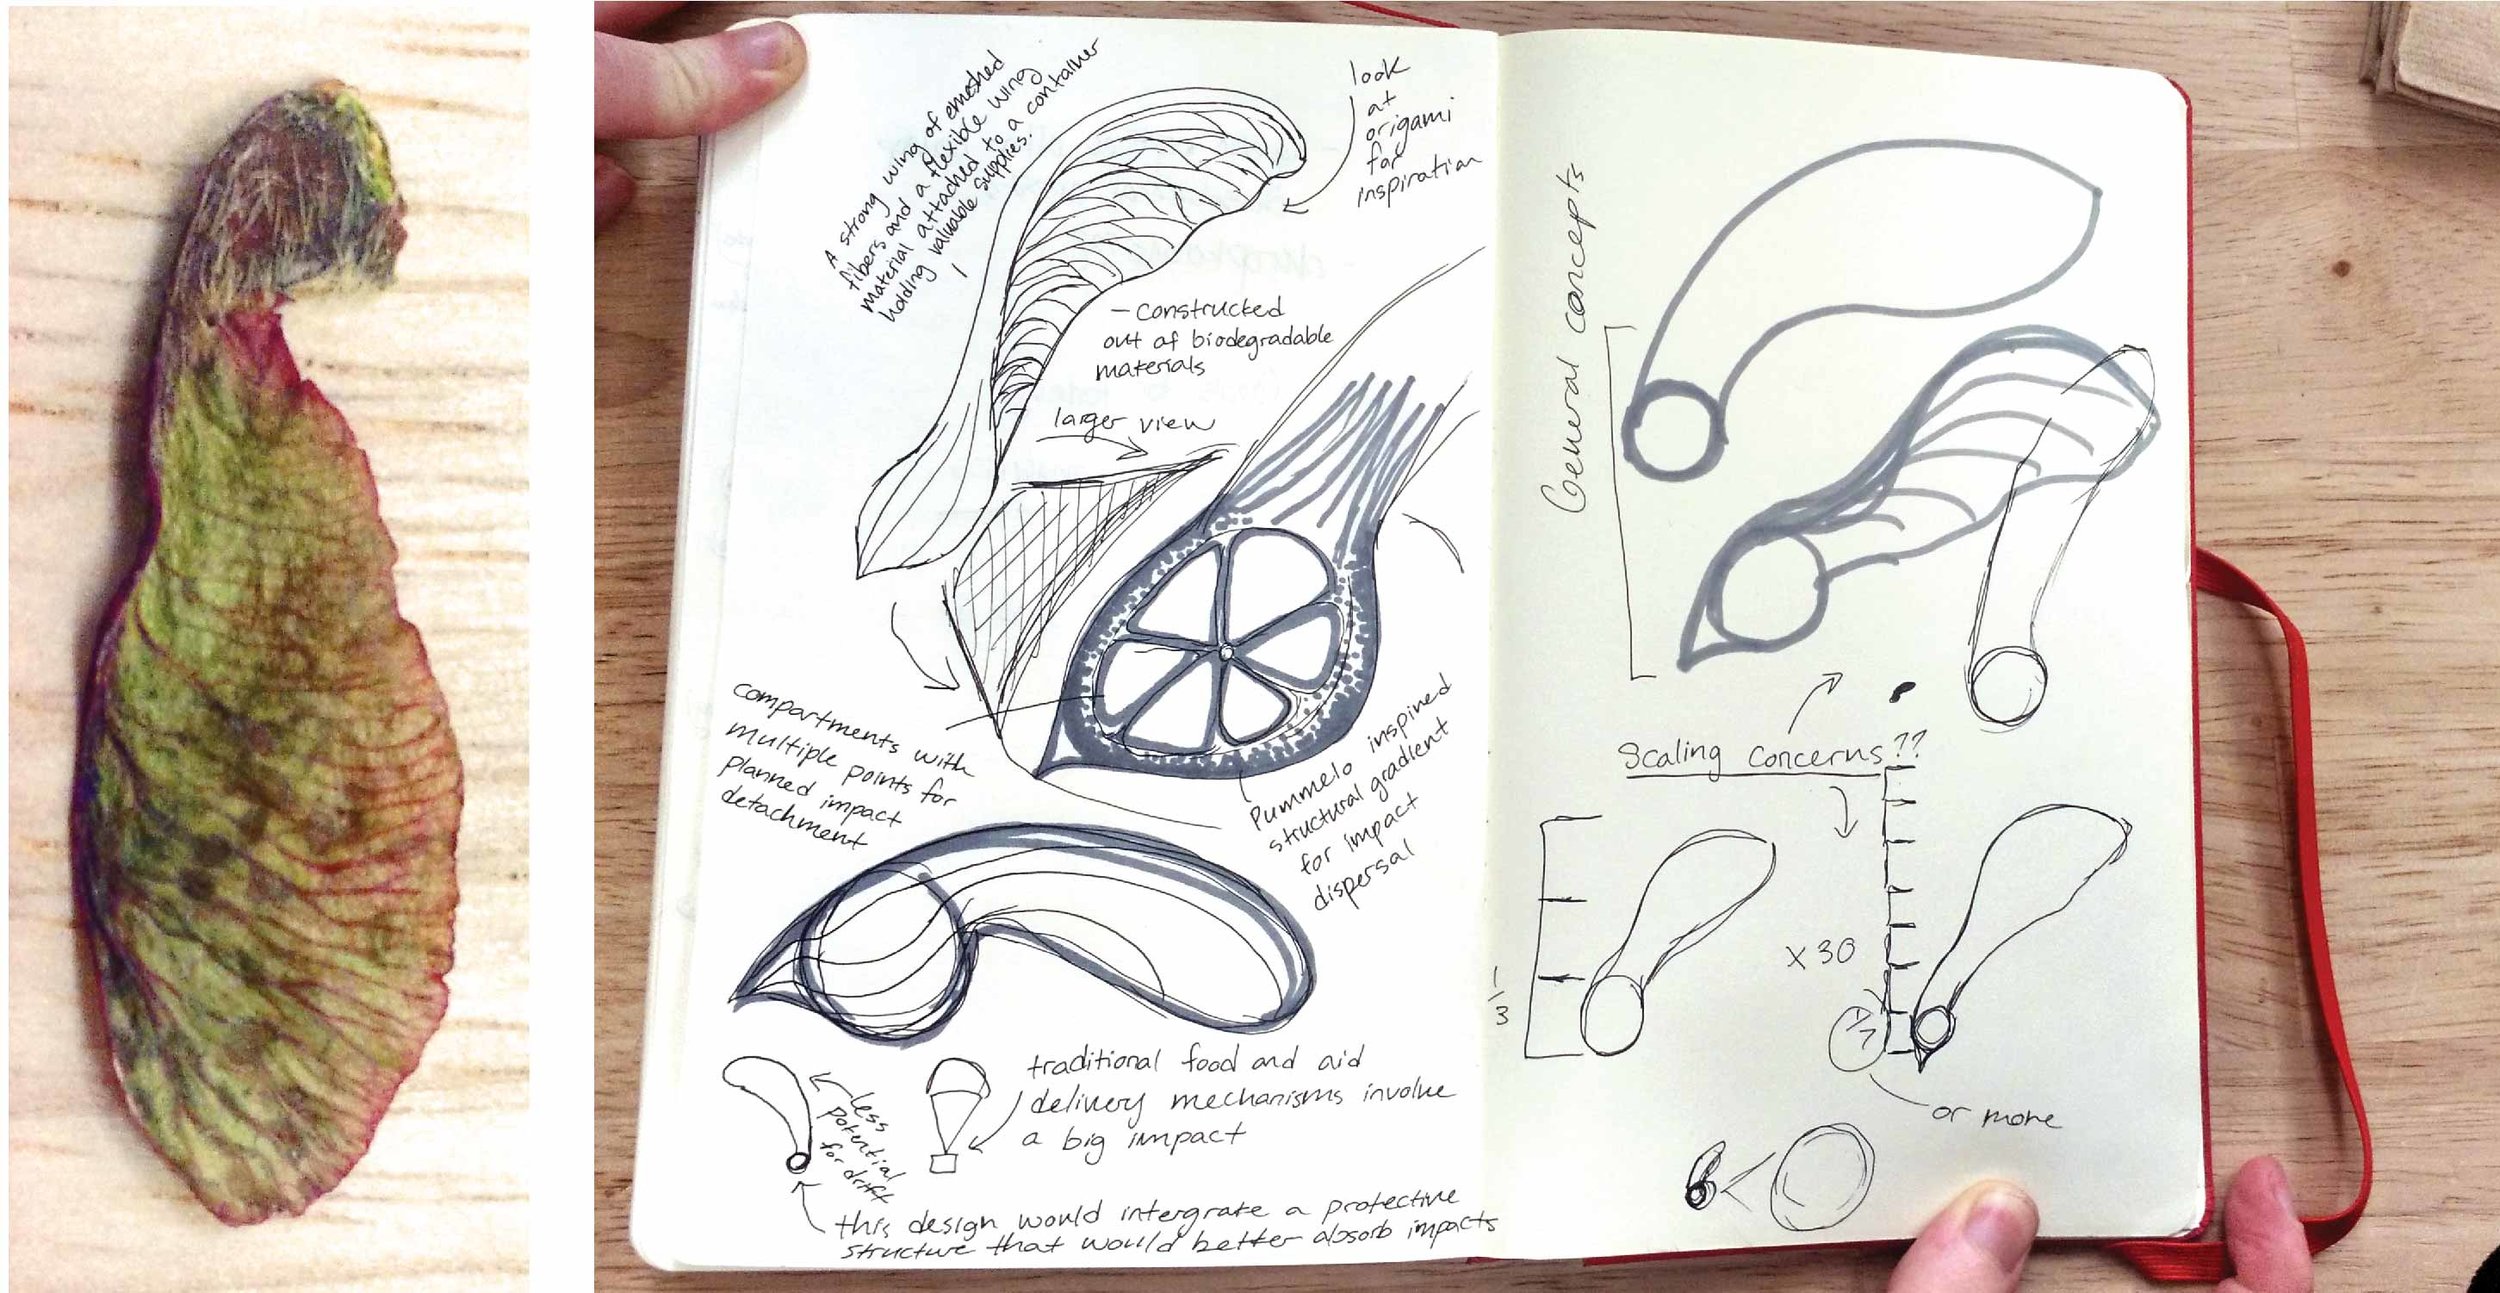 A strong wing of emeshed
fibers and a flexible wing
material attached to a container
holding valuable supplies.
look
at
origami
for
inspiration
- constructed
out of biodegradable
materials
larger view
compartments with
multiple points for
planned impact
detachment
Pummelo inspired
structural gradient
for impact
dispersal
less
potential
for drift
traditional food and aid
delivery mechanisms involve
a big impact
this design would intergrate a protective
structure that would better absorb impacts
General concepts
Scaling concerns??
1/3
x30
1/7
or more